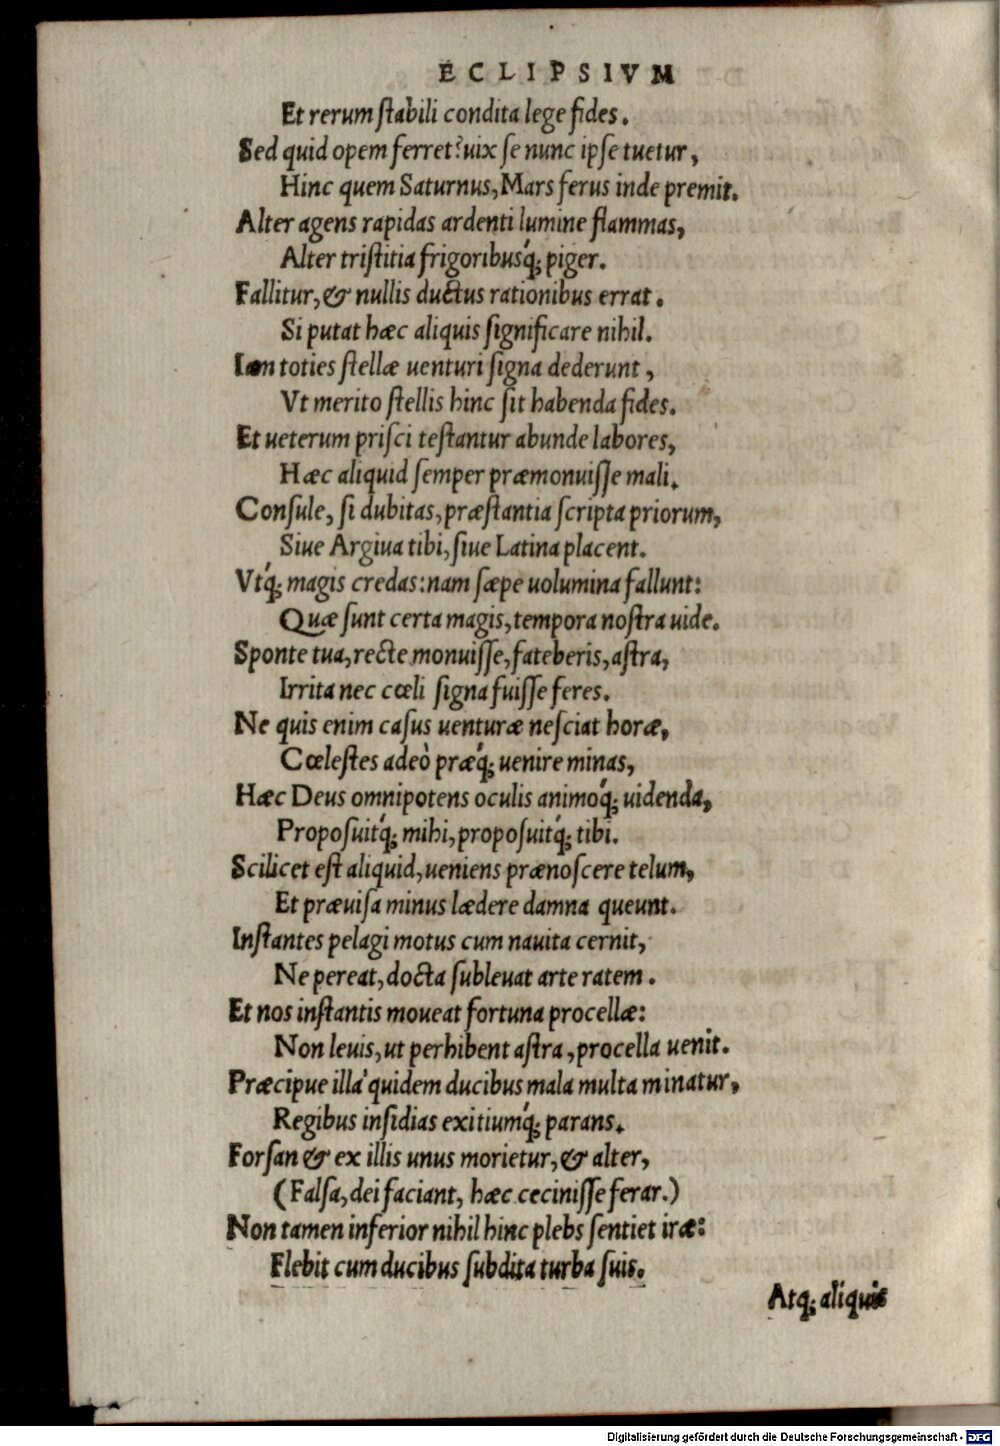 ECLIPSIVM
Et rerum ſtabili condita lege fides.
Sed quid opem ferret? uix ſe nunc ipſe tuetur,
Hinc quem Saturnus, Mars ferus inde premit.
Alter agens rapidas ardenti lumine flammas,
Alter triſtitia frigoribusq́; piger.
Fallitur, & nullis ductus rationibus errat.
Si putat hæc aliquis ſignificare nihil.
Iam toties ſtellæ uenturi ſigna dederunt,
Vt merito ſtellis hinc ſit habenda fides.
Et ueterum priſci teſtantur abunde labores,
Hæc aliquid ſemper præmonuiſſe mali.
Conſule, ſi dubitas, præſtantia ſcripta priorum,
Siue Argiua tibi, ſiue Latina placent.
Vtq́; magis credas: nam ſæpe uolumina fallunt:
Quæ ſunt certa magis, tempora noſtra uide.
Sponte tua, recte monuiſſe, fateberis, aſtra,
Irrita nec cœli ſigna fuiſſe feres.
Ne quis enim caſus uenturæ neſciat horæ,
Cœleſtes adeò præq́; uenire minas,
Hæc Deus omnipotens oculis animoq́; uidenda,
Propoſuitq́; mihi, propoſuitq́; tibi.
Scilicet eſt aliquid, ueniens prænoſcere telum,
Et præuiſa minus lædere damna queunt.
Inſtantes pelagi motus cum nauita cernit,
Ne pereat, docta ſubleuat arte ratem.
Et nos inſtantis moueat fortuna procellæ:
Non leuis, ut perhibent aſtra, procella uenit.
Præcipue illa quidem ducibus mala multa minatur,
Regibus inſidias exitiumq́; parans.
Forſan & ex illis unus morietur, & alter,
(Falſa, dei faciant, hæc ceciniſſe ferar.)
Non tamen inferior nihil hinc plebs ſentiet iræ:
Flebit cum ducibus ſubdita turba ſuis.
Atq; aliquis
Digitalisierung gefördert durch die Deutsche Forschungsgemeinschaft - DFG